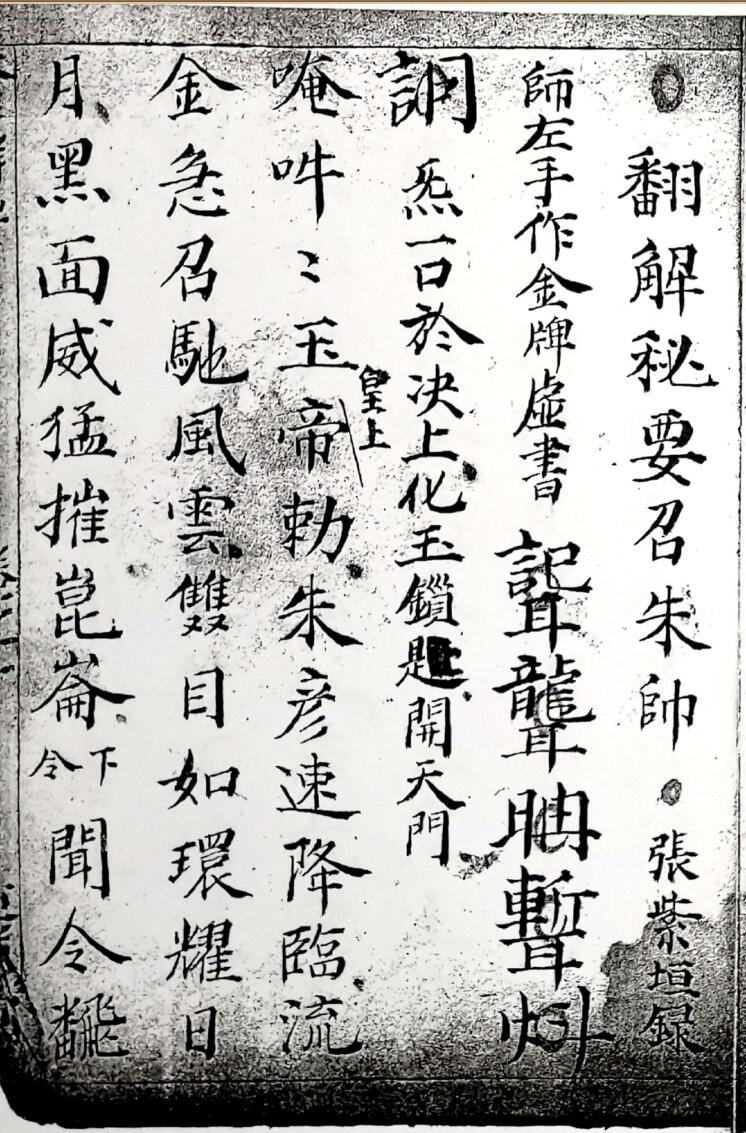 翻解秘要召朱帥 張紫垣録
師左手作金牌虛書
詷炁一口於决上化玉鎖匙開天門
唵吽〻玉帝勅朱彦速降臨流
皇上
金急召馳風雲雙目如環耀日
月黑面威猛摧崑崙下令聞令飜